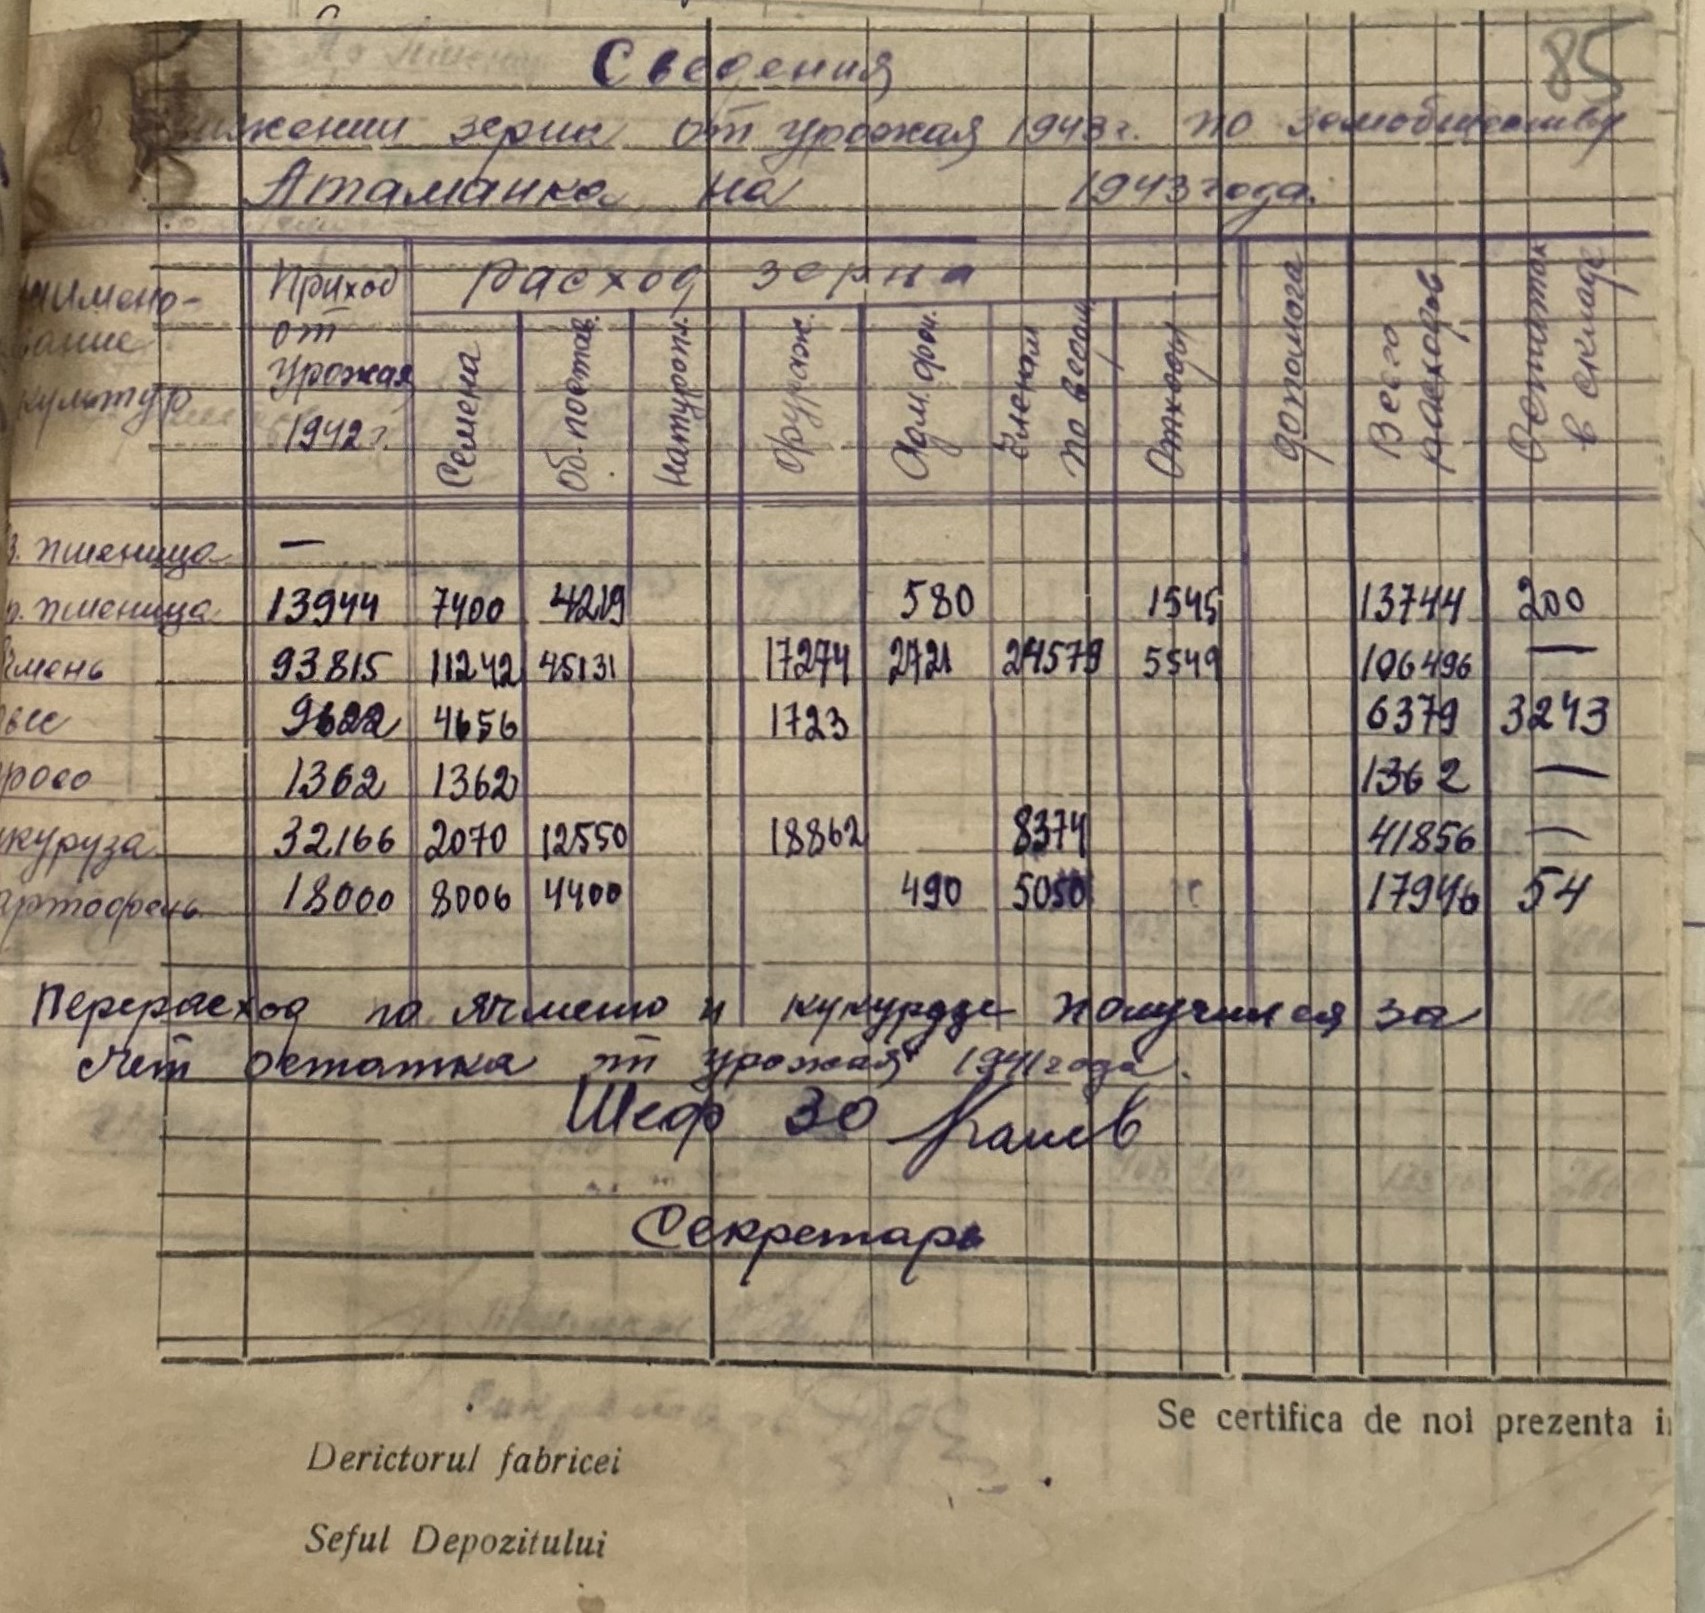 85
Сведения
О движении зерна от урожая 1943г. по землобществу
Атаманка на 1943 года.
наименование культур
Приход от урожая 1942 г.
Расход зерна
Семена
Об. постав.
Натуропл.
Фураж.
Адм. фон.
Членам по ведом
Отходы
Всего расходов
Остаток в складе
з. пшеница —
р. пшеница 13944 7400 4219 580 1545 13744 200
ячмень 93815 11242 45131 17274 2721 24579 5549 106496 —
овес 9622 4656 1723 6379 3243
просо 1362 1362 1362 —
кукуруза 32166 2070 12550 18862 8374 41856 —
картофель 18000 8006 4400 490 5050 17946 54
Перерасход по ячменю и кукурузе получился за
счет остатка от урожая 1941 года.
Шеф ЗО
Секретарь
Se certifica de noi prezenta
Derictorul fabricei
Seful Depozitului